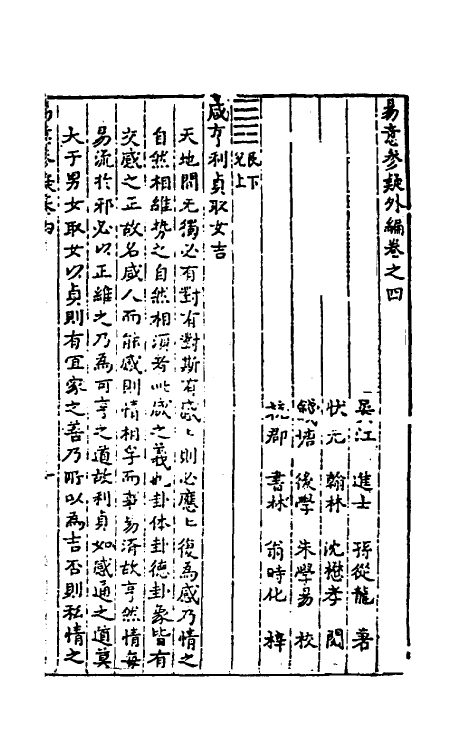 易意參疑外編卷之四
吳江 進士 孫從龍 著
狀元 翰林 沈懋孝 閱
錢塘 後學 朱學易 校
杭郡 書林 翁時化 梓
艮下兌上
咸亨利貞取女吉
天地間无獨必有對有對斯有感〻則必應〻復為感乃情之
自然相維勢之自然相須者此咸之義也卦体卦德卦象皆有
交感之正故名咸人而能感則情相孚而事易濟故亨然情每
易流於邪必以正維之乃為可亨之道故利貞如感通之道莫
大于男女取女以貞則有宜家之善乃所以為吉否則私情之